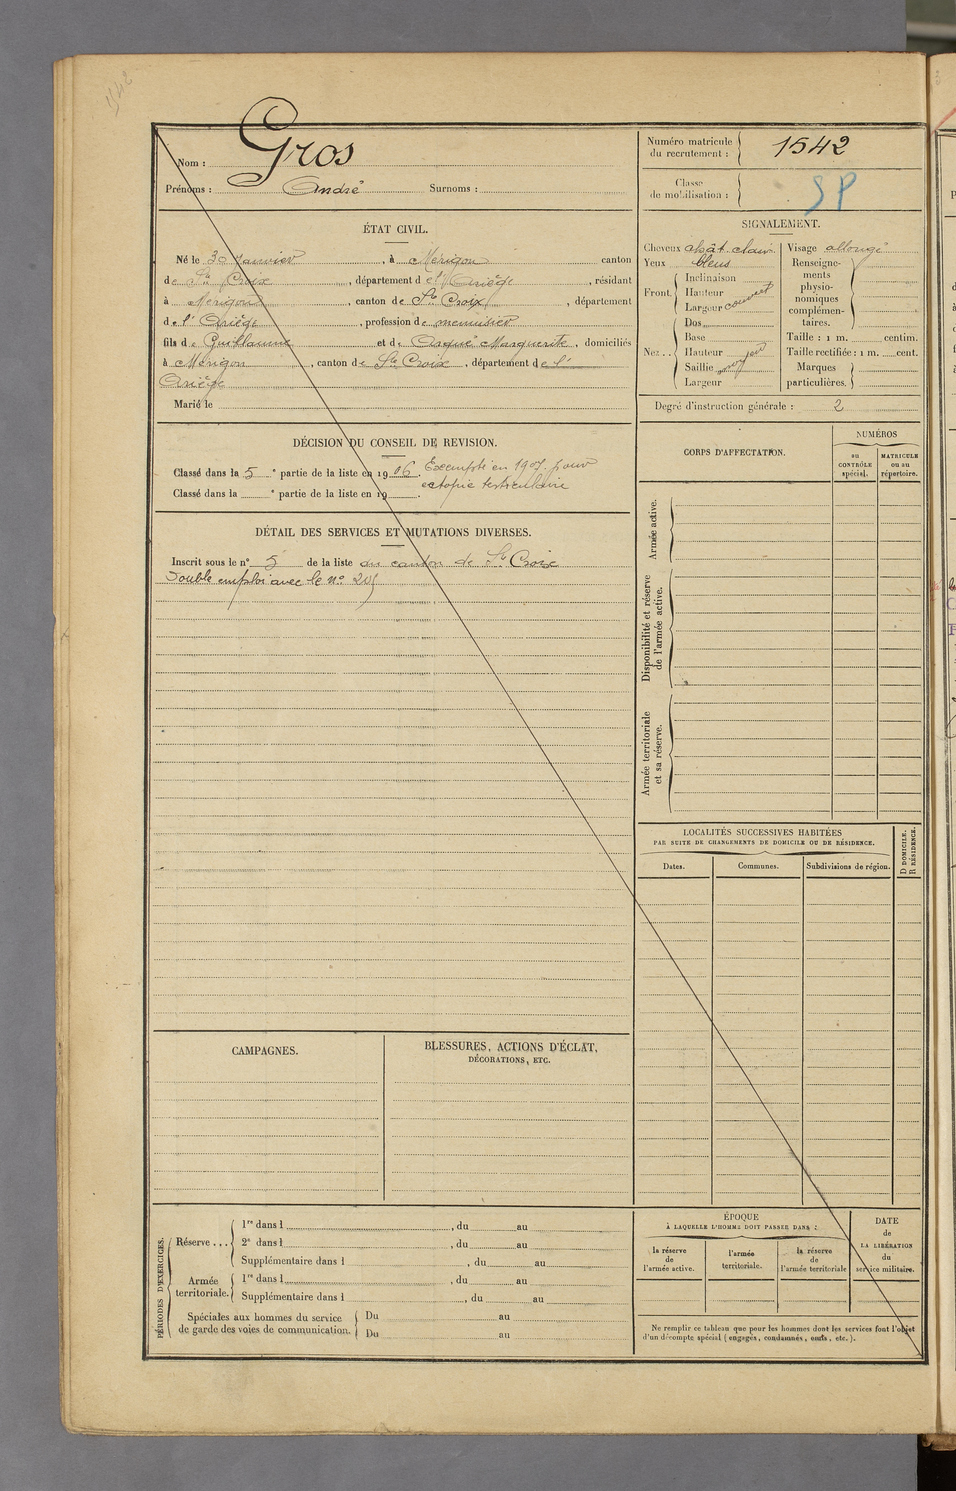 1542
Nom : Gros
Prénoms : André Surnoms :
Numéro matricule du recrutement : 1542
Classe de mobilisation : SP
ÉTAT CIVIL.
Né le 30 Janvier , à Mérigon canton
de Ste Croix , département de l'Ariège , résidant
à Mérigon , canton de Ste Croix , département
de l'Ariège , profession de menuisier
fils de Guillaume et de Arqué Marguerite , domiciliés
à Mérigon , canton de Ste Croix , département de l'
Ariège
Marié le
SIGNALEMENT.
Cheveux chât. clair
Yeux bleus
Front. Inclinaison
Hauteur
Largeur couvert
Nez .. Dos
Base
Hauteur
Saillie moyen
Largeur
Visage allongé
Renseigne-
ments
physio-
nomiques
complémen-
taires.
Taille : 1 m. centim.
Taille rectifiée : 1 m. cent.
Marques
particulières.
Degré d'instruction générale : 2
DÉCISION DU CONSEIL DE REVISION.
Classé dans la 5 e partie de la liste en 1906. Exempté en 1907 pour
Classé dans la e partie de la liste en 19 . ectopie testiculaire
DÉTAIL DES SERVICES ET MUTATIONS DIVERSES.
Inscrit sous le n° 5 de la liste du canton de Ste Croix
Double emploi avec le n° 205
CORPS D'AFFECTATION.
NUMÉROS
au
CONTRÔLE
spécial.
MATRICULE
ou au
répertoire.
Armée active.
Disponibilité et réserve
de l'armée active.
Armée territoriale
et sa réserve.
LOCALITÉS SUCCESSIVES HABITÉES
PAR SUITE DE CHANGEMENTS DE DOMICILE OU DE RÉSIDENCE.
D DOMICILE.
R RÉSIDENCE.
Dates. Communes. Subdivisions de région.
CAMPAGNES.
BLESSURES, ACTIONS D'ÉCLAT,
DÉCORATIONS, ETC.
PÉRIODES D'EXERCICES.
Réserve ... 1re dans l , du au
2e dans l , du au
Supplémentaire dans l , du au
Armée
territoriale. 1re dans l , du au
Supplémentaire dans l , du au
Spéciales aux hommes du service
de garde des voies de communication. Du au
Du au
ÉPOQUE
À LAQUELLE L'HOMME DOIT PASSER DANS :
la réserve
de
l'armée active.
l'armée
territoriale.
la réserve
de
l'armée territoriale
DATE
de
LA LIBÉRATION
du
service militaire.
Ne remplir ce tableau que pour les hommes dont les services font l'objet
d'un décompte spécial (engagés, condamnés, omis, etc.).